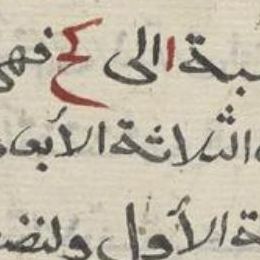 نسبة ا الى كح فهى
الثلاثة الأبعا
ة الأول ولنضـ